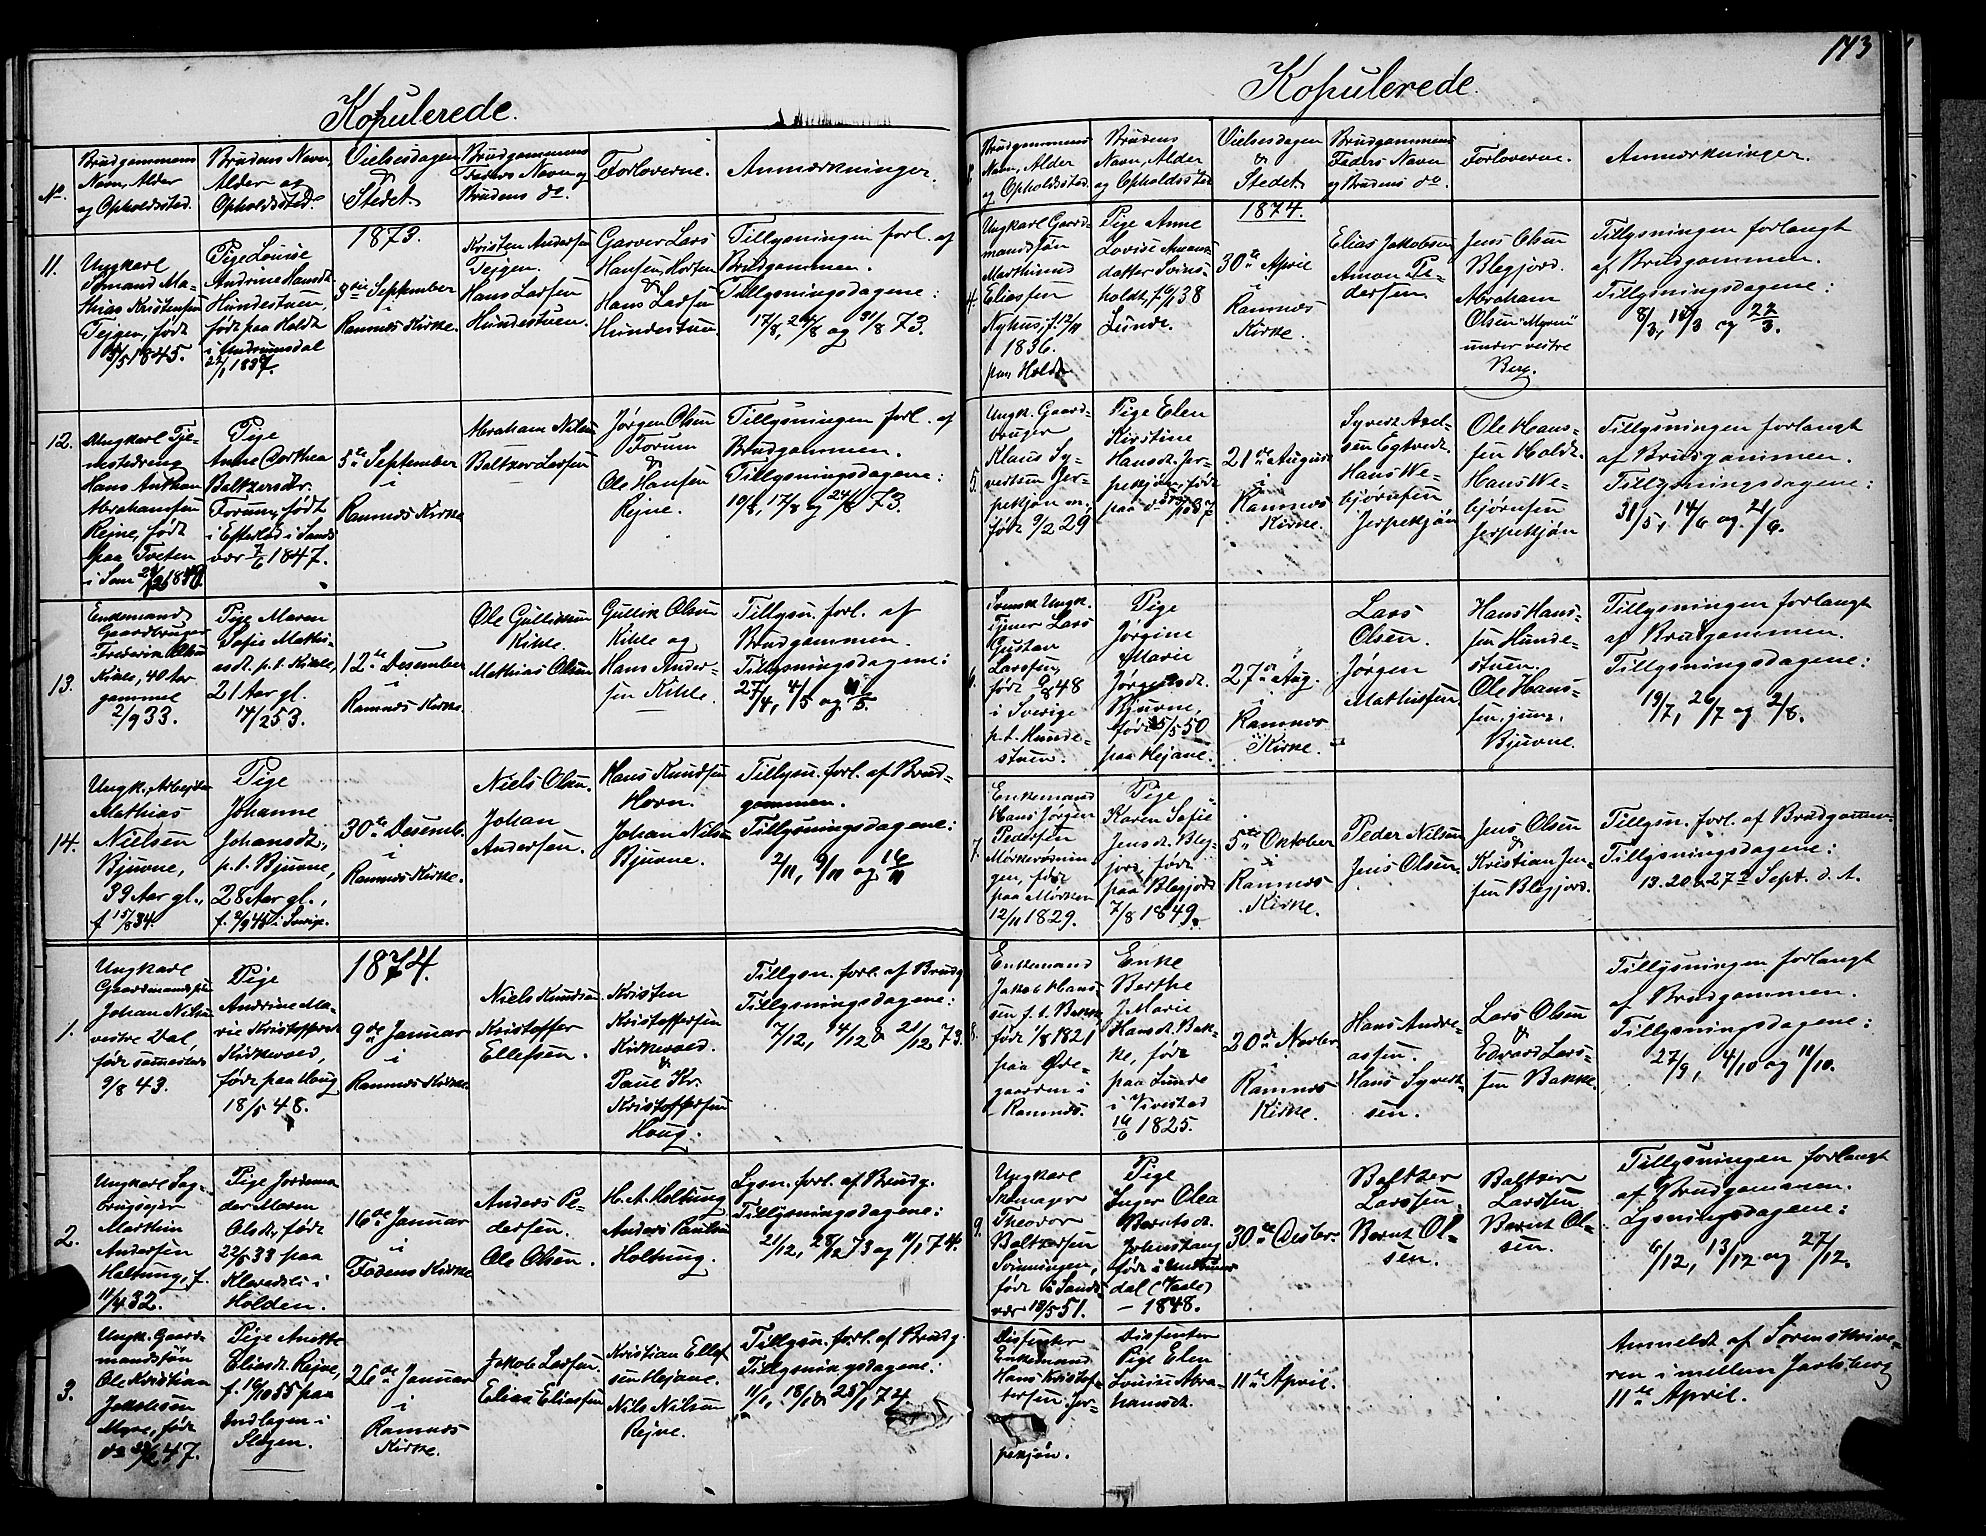 143
Kopulerede.
No.
Brudgommens
Navn, Alder
og Opholdssted.
Brudens Navn,
Alder og
Opholdssted.
Vielsesdagen
&
Stedet.
Brudgommens
Faders Navn og
Brudens do.
Forloverne.
Anmærkninger.
11.
Ungkarl
Mathias Kristensen
Tejgen, født
1845.
Pige Louise
Andrine Hansdt.
Hundestuen,
født paa Holdt
i Undrumsdal
22/1 1837.
1873.
3die September
Ramnes Kirke.
Kristen Andersen
Tejgen.
Hans Larsen
Hundestuen.
Garver Lars
Hansen, Horten
&
Hans Larsen
Hundestuen.
Tillysningen forl. af
Brudgommen.
Tillysningsdagene:
17/8, 24/8 og 31/8 73.
12.
Ungkarl Tje-
nestedreng
Hans Anthon
Abrahamsen
Rejne, født
paa Tveten
i Sem
Pige
Anne Dorthea
Baltzersdr.
Forum, født
i Efterlød i Sands
vær 7/6 1847.
5te September
i
Ramnes Kirke
Abraham Nilsen
Baltzer Larsen
Jørgen Olsen
Forum
&
Ole Hansen
Rejne.
Tillysningen forl. af
Brudgommen.
Tillysningsdagene:
10/8, 17/8 og 24/8 73.
13.
Enkemand
Gaardbruger
Frederik Olsen
Kihle, 40 Aar
gammel
2/9 33.
Pige Maren
Sofie Mathi-
asdt. p.t. Kihle,
21 Aar gl.
14/2 53.
12te Desember
i
Ramnes Kirke.
Ole Gulliksen
Kihle.
Mathias Olsen
Gullik Olsen
Kihle og
Hans Ander-
sen Kihle.
Tillysn. forl. af
Brudgommen.
Tillysningsdagene:
27/4, 4/5 og 11/5.
14.
Ungk. Arbejder
Mathias
Nielsen
Bjuvne,
39 Aar gl.,
f. 15/8 34.
Pige
Johanne
Johansdt.,
p.t. Bjuvne,
28 Aar gl.,
f. 2/9 45 i Sverige.
30te Desemb.
i
Ramnes Kirke.
Niels Olsen.
Johan
Andersen.
Hans Knudsen
Horn.
Johan Nilsen
Bjuvne.
Tillysn. forl. af Brud-
gommen.
Tillysningsdagene:
2/11, 9/11 og 16/11
1.
Ungkarl
Gaardmandssøn
Johan Nilsen
vestre Dal,
født sammesteds
9/8 43.
Pige
Andrine Ma-
rie Kristoffersdt.
Kirkevold,
født paa Houg
18/5 48.
1874.
9de Januar
i
Ramnes Kirke.
Niels Knudsen.
Kristoffer
Ellefsen.
Kristen
Kristoffersen
Kirkevold.
&
Paul Kr.
Kristoffersen
Houg.
Tillysn. forl. af Brudg.
Tillysningsdagene:
7/12, 14/12 & 21/12 73.
2.
Ungkarl Sag-
brugsejer
Marthin
Andersen
Holtung, f.
11/4 32.
Pige Jordemo
der Maren
Olsdt., født
22/6 33 paa
i
Holden.
16de Januar
i
Fodens Kirke
Anders Pe-
dersen.
Ole Olsen.
H. A. Holtung
Anders Paulsen
Holtung.
Lysn. forl. af Brudg.
Tillysningsdagene:
21/12, 28/12 73 og 11/1 74.
3.
Ungk. Gaard-
mandssøn
Ole Kristian
Jakobsen
Myre, født
47.
Pige Anette
Eliasdt. Rejne,
f. 16/10 55 paa
Indlagen i
Slagen.
26de Januar
i
Ramnes
Kirke.
Jakob Larsen.
Elias Eliassen
Kristian Ellef
sen Hejane.
Nils Nilsen
Rejne.
Tillysn. forl. af Brudg.
Tillysningsdagene:
11/1, 18/1 & 25/1 74.
Kopulerede.
Brudgommens
Navn, Alder
og Opholdssted.
Brudens
Navn, Alder
og Opholdssted
Vielsesdagen
&
Stedet.
Brudgommens
Faders Navn
og Brudens do.
Forloverne.
Anmærkninger.
4.
Ungkarl Gaard-
mandssøn
Marthinus
Eliassen
Nyhus, f. 12/11
1836.
paa Holdt
Pige Anne
Lovise Amons-
datter Svins-
holdt, f. 38
Lunde.
1874.
30te April
i
Ramnes
Kirke.
Elias Jakobsen
Amon Pe-
dersen.
Jens Olsen
Blegjord.
Abraham
Olsen "Myren"
under vestre
Berg.
Tillysningen forlangt
af Brudgommen.
Tillysningsdagene:
8/3, 15/3 og 22/3.
5.
Ungk. Gaard-
bruger
Klaus Sy-
vertsen Jer-
pekjøn
født 9/2 29
Pige Elen
Kirstine
Hansdt. Jer-
pekjøn, født
paa do
21de August
i
Ramnes
Kirke.
Syvert Axel-
sen Egtvedt.
Hans We-
bjørnsen
Jerpekjøn
Ole Hans-
sen Holdt.
Hans We-
bjørnsen
Jerpekjøn
Tillysningen forlangt
af Brudgommen.
Tillysningsdagene:
31/5, 14/6 og 21/6.
6.
Svensk Ungk.
Tjener Lars
Gustav
Larssen,
født 48
i Sverige
p.t. Hunde-
stuen.
Pige
Jørgine
Marie
Jørgensdt.
Bjuvne,
født 15/5 50
paa Hejane.
27de Aug.
i
Ramnes
Kirke.
Lars
Olsen.
Jørgen
Mathissen.
Hans Hans-
sen Hunde-
stuen.
Ole Hans-
sen, jun.
Bjuvne.
Tillysningen forlangt
af Brudgommen.
Tillysningsdagene:
19/7, 26/7 og 2/8.
7.
Enkemand
Hans Jørgen
Pedersen
gen, født
paa Mørken
12/11 1829.
Pige
Karen Sofie
Jensdt. Bleg-
jord, født
paa Blegjord
7/8 1849.
5te Oktober
i
Ramnes
Kirke.
Peder Nilsen
Jens Olsen.
Jens Olsen
&
Kristian Jen-
sen Blegjord.
Tillysn. forl. af Brudgommen.
Tillysningsdagene:
13. 20 & 27de Sept. d. A.
8.
Enkemand
Jakob Hans-
sen p.t. Bakke
født 1/8 1821
paa Øde-
gaarden i
Ramnes.
Enke
Berthe
Marie
Hansdt. Bak-
ke, født
paa Lunde
i Vivestad
16/6 1825.
20de Novbr.
i
Ramnes
Kirke.
Hans Andre-
assen.
Hans Syvert-
sen.
Lars Olsen
&
Edvard Lars-
sen Bakke.
Tillysningen forlangt
af Brudgommen.
Tillysningsdagene:
27/9, 4/10 og 11/10.
9.
Ungkarl
Skomager
Theodor
Baltzersen
Svinningen,
født i Sands-
vær 10/5 51.
Pige
Inger Olea
Berntsdt.
født i Undrums
dal (Vaale)
– 1848.
30te Desbr.
Baltzer
Larssen.
Bernt Ol-
sen.
Baltzer
Larssen
Bernt Ol-
sen.
Tillysningen forlangt
af Brudgommen.
Lysningsdagene:
6/12, 13/12 og 27/12.
Dissenter
Enkemand
Hans Kristof-
fersen Jer-
pekjøn.
Dissenter
Pige Elen
Lovise Abra-
hamsdt.
11te April.
Anmeldt af Sorenskrive-
ren i mellem Jarlsberg
11te April.